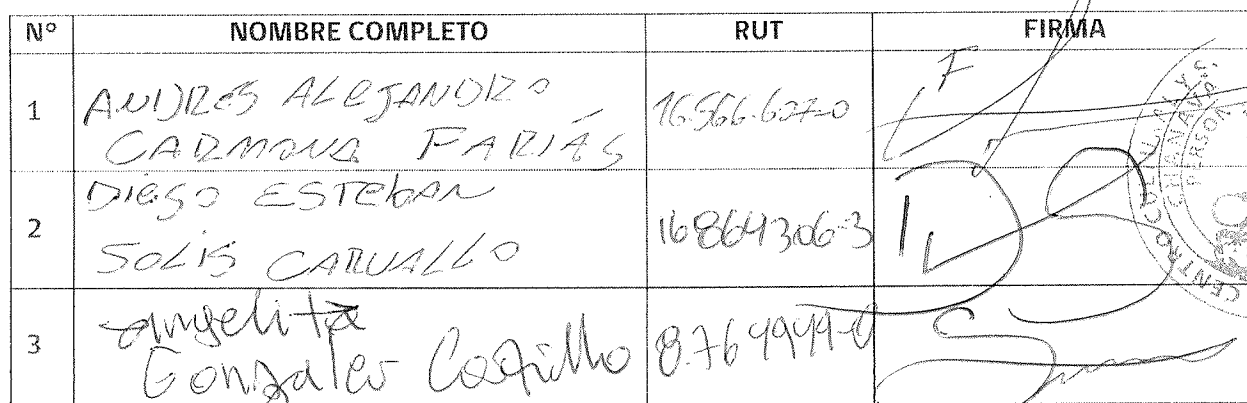 N° NOMBRE COMPLETO RUT FIRMA
1 ANDRES ALEJANDRO
CARMONA FARIAS 16.566.607-0
2 DIEGO ESTEBAN
SOLIS CARVALLO 16864306-3
3 Angelita
Gonzalez
CENTRO CULTURAL
PERSON